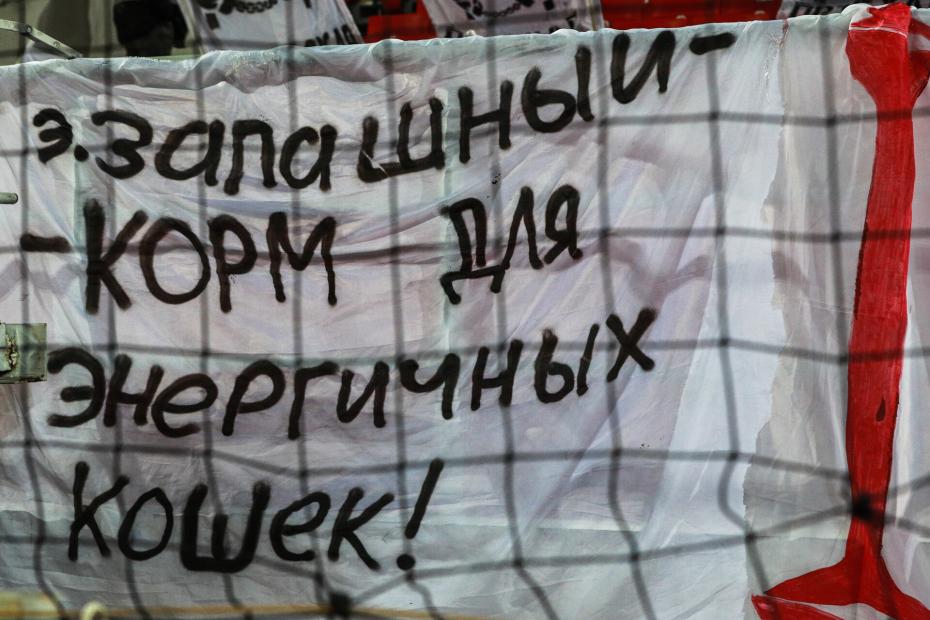 э.запашный-
-КОРМ для
энергичных
кошек!